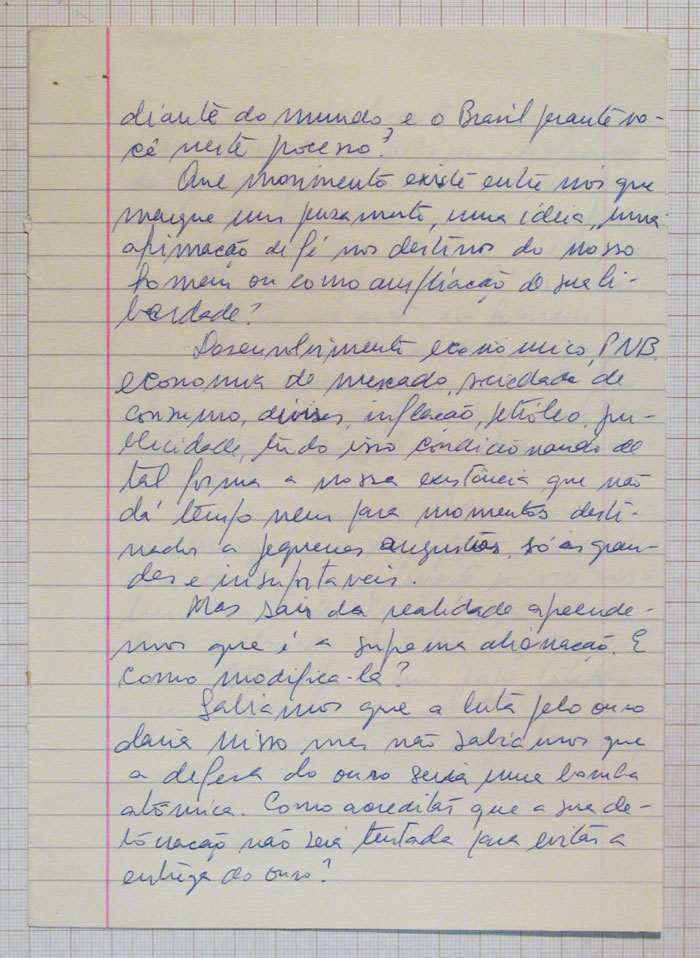 diante do mundo e o Brasil perante vo-
cê neste processo?
Que movimento existe entre nós que
marque um pensamento, uma idéia, uma
afirmação de fé nos destinos do nosso
homem ou como ampliação de sua li-
berdade?
Desenvolvimento econômico, PNB,
economia de mercado, sociedade de
consumo, divisas, inflação, petróleo, pu-
blicidade, tudo isso condicionando de
tal forma a nossa existência que não
dá tempo nem para momentos desti-
nados a pequenas angustias, só as gran-
des e insuportaveis.
Mas sair da realidade aprende-
mos que é a suprema alienação. E
como modifica-la?
Sabiamos que a luta pelo ouro
daria nisso mas não sabiamos que
a defesa do ouro seria uma bomba
atômica. Como acreditar que a sua de-
tonação não será tentada para evitar a
entrega do ouro?